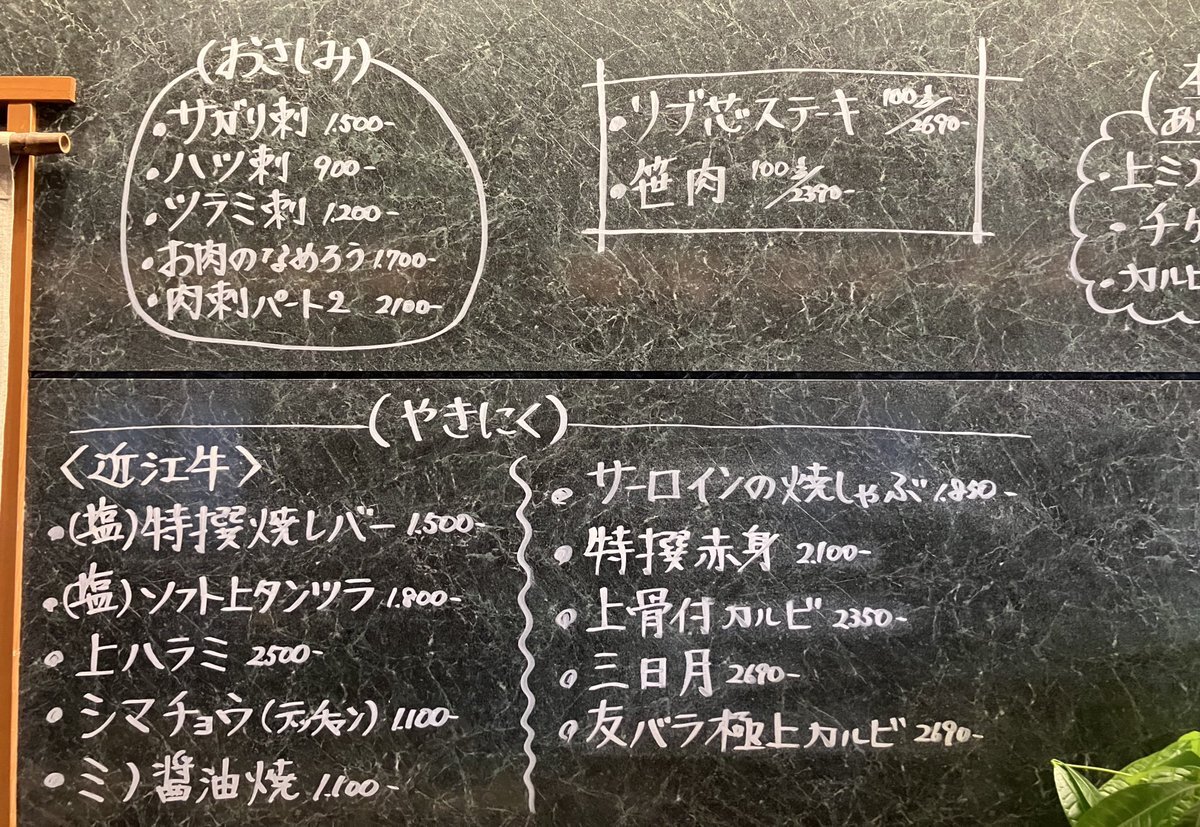 (おさしみ)
・サガリ刺 1.500-
・ハツ刺 900-
・ツラミ刺 1.200-
・お肉のなめろう 1.700-
・肉刺パート2 2100-
・リブ芯ステーキ 100g/2690-
・笹肉 100g/2390-
・上ミ
・チ
・カルビ
(やきにく)
〈近江牛〉
・(塩)特撰焼レバー 1.500-
・(塩)ソフト上タンツラ 1.800-
・上ハラミ 2500-
・シマチョウ(テッチャン) 1.100-
・ミノ醤油焼 1.100-
・サーロインの焼しゃぶ 1.850-
・特撰赤身 2100-
・上骨付カルビ 2350-
・三日月 2690-
・友バラ極上カルビ 2690-